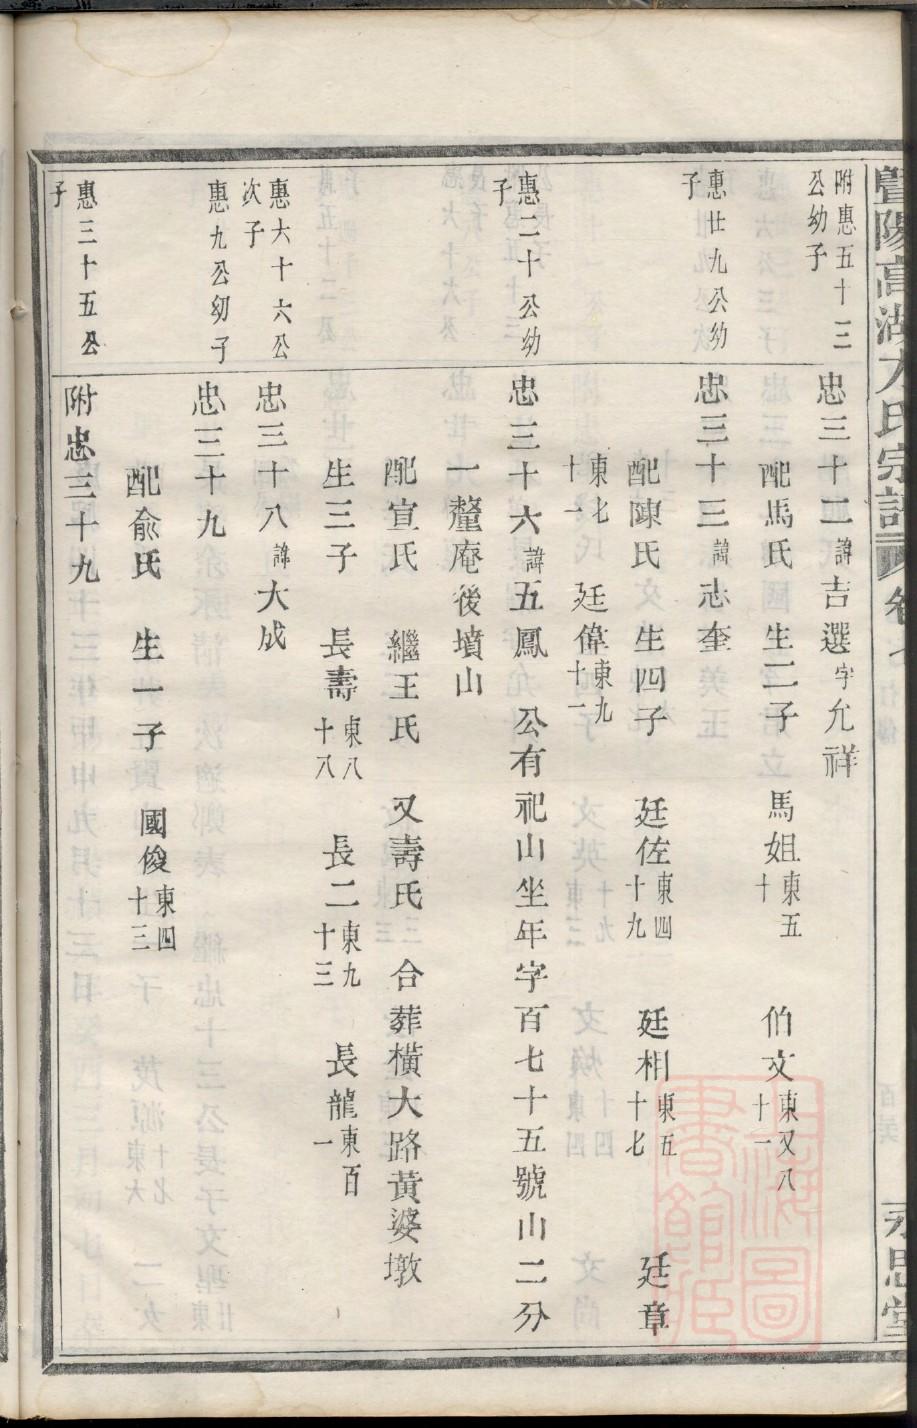 暨陽高湖方氏宗譜 卷七 永思堂
附惠五十三公幼子
忠三十二諱吉選字允祥
配馬氏 生二子 馬姐東五十 伯文東又八十一
惠廿九公幼子
忠三十三諱志奎
配陳氏 生四子 廷佐東四十九 廷相東五十七 廷章
東七十一 廷偉東九十一
惠二十公幼子
忠三十六諱五鳳 公有祀山坐年字百七十五號山二分
一釐庵後墳山
配宣氏 繼王氏 又壽氏 合葬橫大路黃婆墩
生三子 長壽東八十八 長二東九十三 長龍東百一
惠六十六公次子
忠三十八諱大成
惠九公幼子
忠三十九
配俞氏 生一子 國俊東四十三
惠三十五公子
附忠三十九